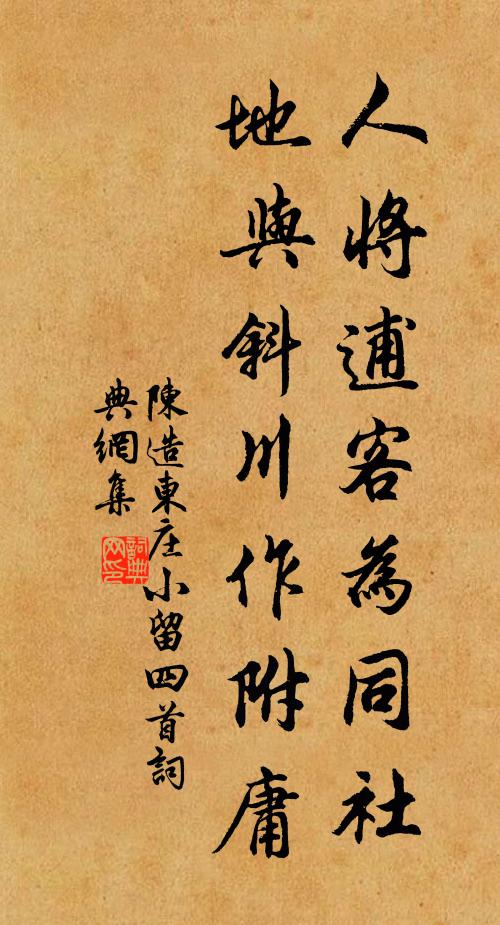 人將逋客為同社
地與斜川作附庸
陳造東庄小留四首詞
典網集
詞典
网印